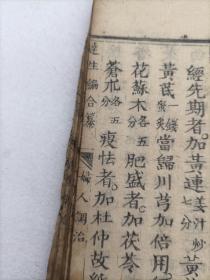 經先期者。加黃連姜汁炒七分黃
黃芪一錢蜜炙當歸川芎加倍用
花蘇木各五分肥盛者。加茯苓
蒼朮各五分瘦怯者。加杜仲故紙
達生編合纂 婦人調治